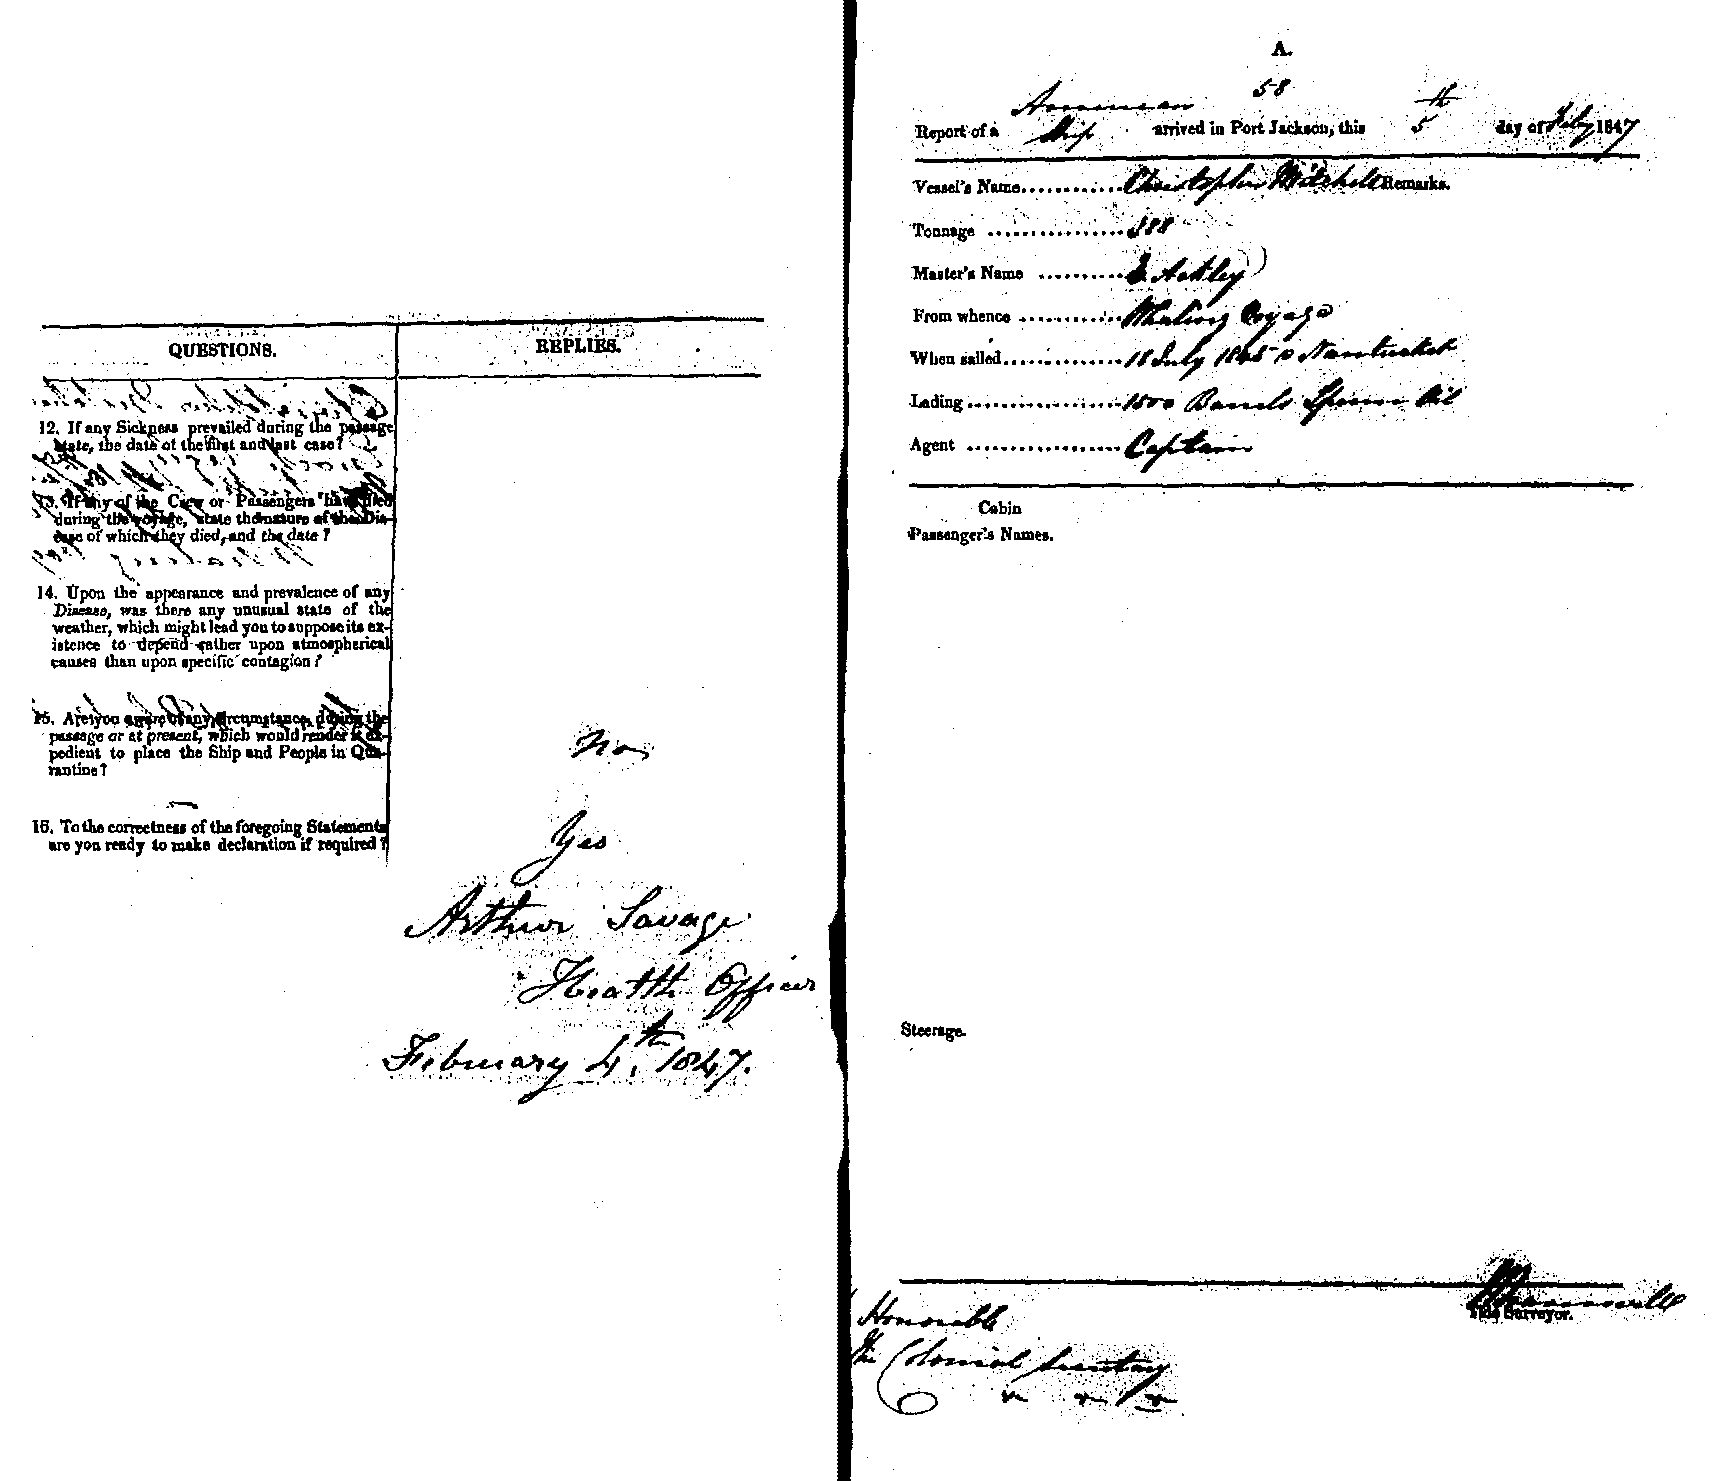 QUESTIONS.
REPLIES.
12. If any Sickness prevailed during the passage
state, the date of the first and last case?
13. If any of the Crew or Passengers have died
during the voyage, state the nature of the Dis-
ease of which they died, and the date?
14. Upon the appearance and prevalence of any
Disease, was there any unusual state of the
weather, which might lead you to suppose its ex-
istence to depend rather upon atmospherical
causes than upon specific contagion?
15. Are you aware of any circumstance, during the
passage or at present, which would render it ex-
pedient to place the Ship and People in Qua-
rantine?
No
16. To the correctness of the foregoing Statements
are you ready to make declaration if required?
Yes
Arthur Savage
Health Officer
February 4th 1847.
A.
58
American
Report of a Ship arrived in Port Jackson, this 5th day of Feby 1847
Vessel's Name............Christopher Mitchell Remarks.
Tonnage ...............388
Master's Name .........E Ackley
From whence ............Whaling Voyage
When sailed.............18 July 1845 Nantucket
Lading..................1500 Barrels Sperm Oil
Agent ..................Captain
Cabin
Passenger's Names.
Steerage.
Tide Surveyor.
Honorable
The Colonial Secretary